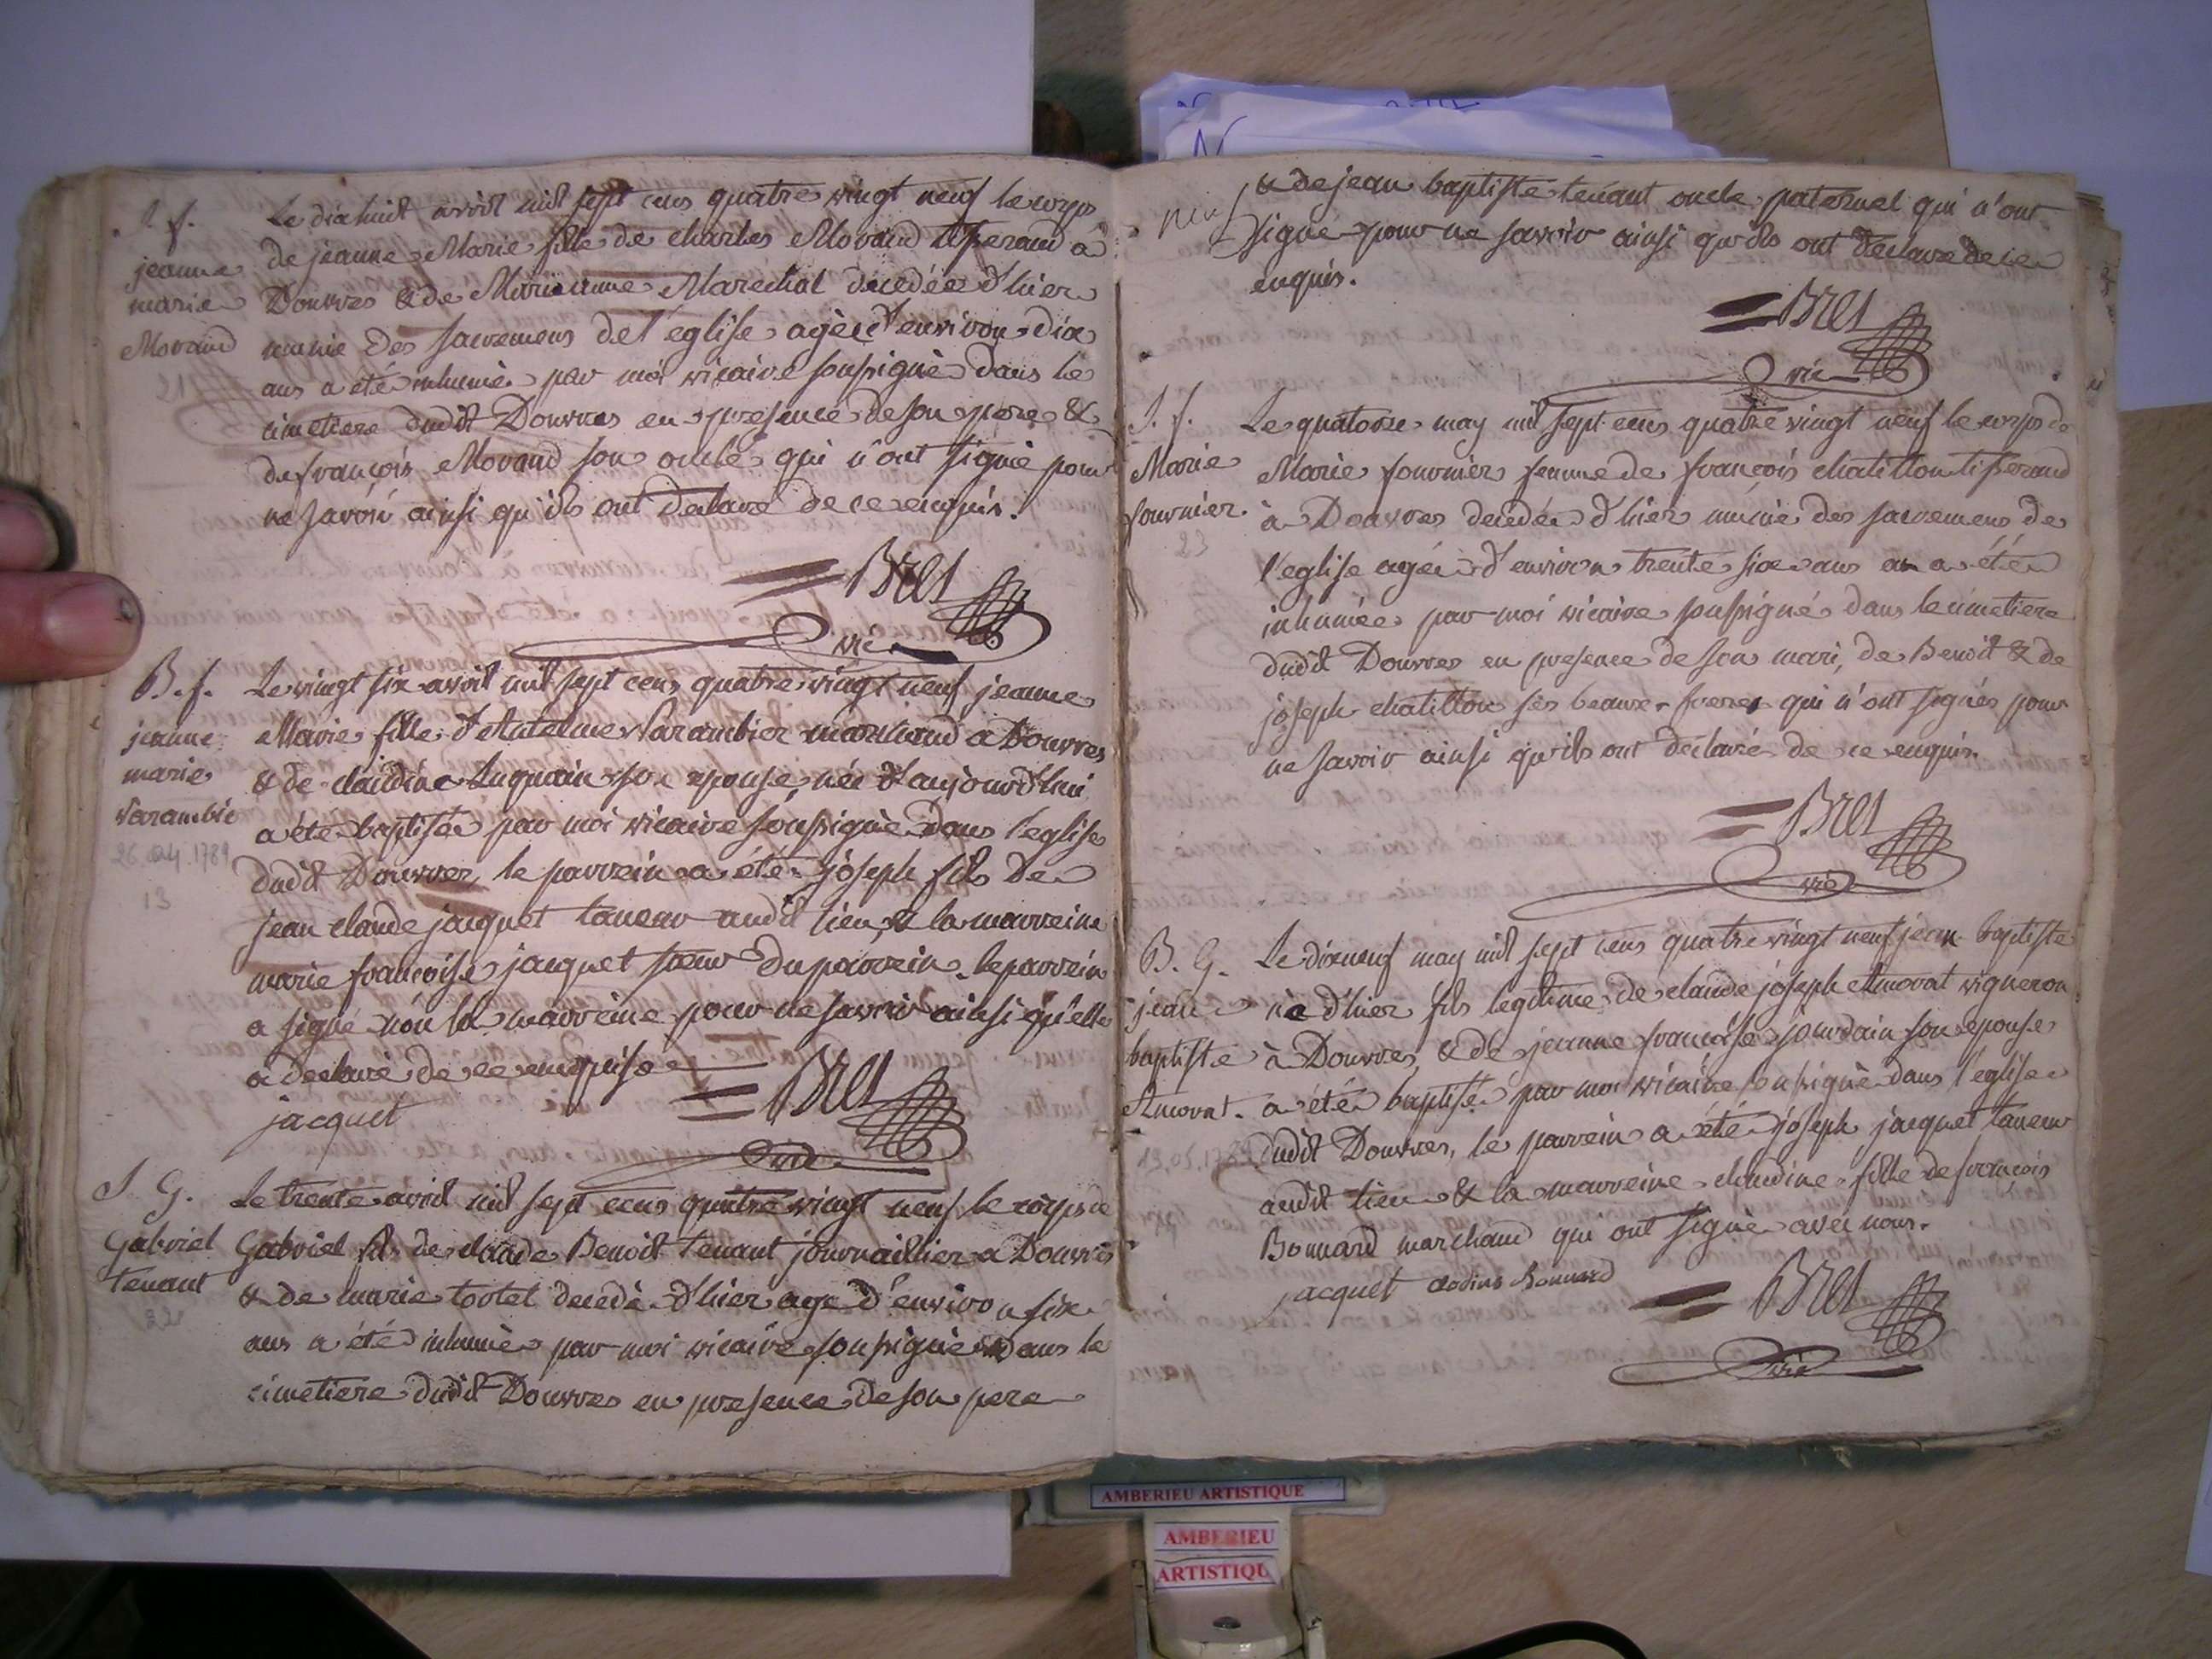 S. f.
jeanne
marie
Morand
21
Le dix huit avril mil sept cens quatre vingt neuf le corps
de jeanne Marie fille de charles Morand tisserand à
Douvres & de Marianne Marechal decedée d'hier
munie des sacremens de l'eglise agée d'environ dix
ans a été inhumée par moi vicaire soussigné dans le
cimetiere dudit Douvres en presence de son pere &
de françois Morand son oncle qui n'ont signé pour
ne savoir ainsi qu'ils ont declaré de ce enquis.
Bret
vic
B. f.
jeanne
marie
Varambie
26.04.1789
13
Le vingt six avril mil sept cens quatre vingt neuf jeanne
Marie fille d'Antelme Varambier marchand a Douvres
& de claudine Luquain son epouse née d'aujourd'hui
a été baptisée par moi vicaire soussigné dans l'eglise
dudit Douvres, le parrein a été joseph fils de
jean claude jacquet taneur audit lieu, & la marreine
marie françoise jacquet sœur du parrein, le parrein
a signé non la marreine pour ne savoir ainsi qu'elle
a declaré de ce enquise
jacquet
Bret
vic
S. G.
Gabriel
tenant
22
Le trente avril mil sept cens quatre vingt neuf le corps de
Gabriel fils de claude Benoit tenant journaillier a Douvres
& de marie tortel decedé d'hier age d'environ six
ans a été inhumé par moi vicaire soussigné dans le
cimetiere dudit Douvres en presence de son pere
neuf
& de jean baptiste tenant oncle paternel qui n'ont
signé pour ne savoir ainsi qu'ils ont declaré de ce
enquis.
Bret
vic
S. f.
Marie
fournier.
23
Le quatorze may mil sept cens quatre vingt neuf le corps de
Marie fournier femme de françois chatillon tisserand
à Douvres decedée d'hier munie des sacremens de
l'eglise agée d'environ trente six ans a été
inhumée par moi vicaire soussigné dans le cimetiere
dudit Douvres en presence de son mari, de Benoit & de
joseph chatillon ses beaux-freres qui n'ont signés pour
ne savoir ainsi qu'ils ont déclaré de ce enquis.
Bret
vic
B. G.
jean
baptiste
Amorat.
Le dixneuf may mil sept cens quatre vingt neuf jean baptiste
né d'hier fils legitime de claude joseph Amorat vigneron
à Douvres, & de jeanne françoise jourdain son epouse
a été baptisé par moi vicaire soussigné dans l'eglise
dudit Douvres, le parrein a été joseph jacquet taneur
audit lieu & la marreine claudine fille de françois
Bonnard marchand qui ont signé avec nous.
jacquet clodine Bonnard
Bret
vic
AMBERIEU ARTISTIQUE
AMBERIEU
ARTISTIQU